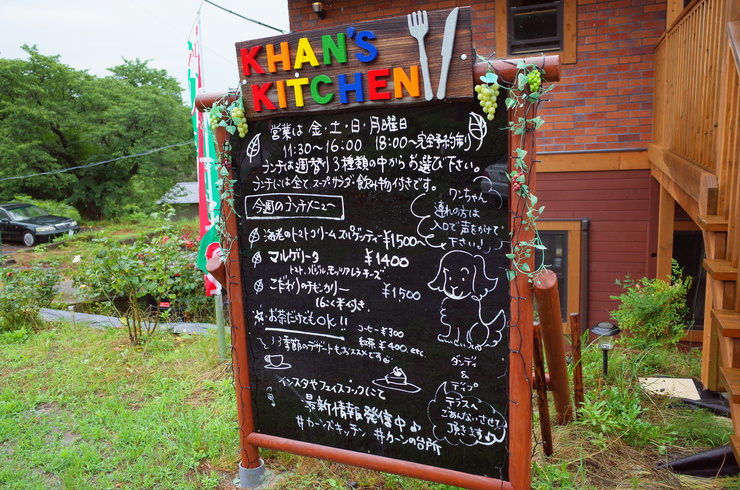 KHAN'S
KITCHEN
営業は 金・土・日・月曜日
11:30〜16:00 18:00〜完全予約制
ランチは週替り3種類の中からお選び下さい。
ランチには全て、スープ、サラダ、飲み物付きです。
今週のランチメニュー
海老のトマトクリームスパゲッティー ¥1500
マルゲリータ ¥1400
トマト、バジル、モッツァレラチーズ
こだわりのチキンカリー
16こく米付き ¥1500
お茶だけでもOK!!
コーヒー ¥300
紅茶 ¥400, etc
季節のデザートもおススメです
インスタやフェイスブックにて
最新情報発信中♪
#カーンズキッチン #カーンの台所
ワンちゃん
連れの方は
入口で声をかけて
下さい。
ダンディ
&
ディップ
テラスへ
ごあんないさせて
頂きます♪